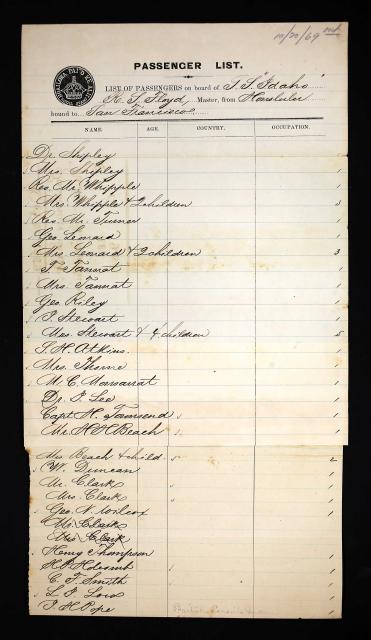 10/20/69
PASSENGER LIST.
LIST OF PASSENGERS on board of T. S. "Idaho"
R. S. Floyd, Master, from Honolulu
bound to San Francisco
NAME. AGE. COUNTRY. OCCUPATION.
Dr. Shipley
Mrs. Shipley 1
Rev. Mr. Whipple 1
Mrs. Whipple & 2 children 3
Rev. Mr. Turner 1
Geo. Leonard 1
Mrs. Leonard & 2 children 3
T. Tannat 1
Mrs. Tannat 1
Geo. Riley 1
J. Stewart 1
Mrs. Stewart & 4 children 5
S. H. Atkins. 1
Mrs. Thorne 1
M. C. Monsarrat 1
Dr. J. Lee 1
Capt. H. Townsend 1
Mr. H H Beach 1
Mrs Beach & child 2
W. Duncan 1
Mr. Clark 1
Mrs. Clark 1
Geo. N. Wilcox 1
Mr. Clark
Mrs. Clark
Henry Thompson 1
H. A. Holcomb 1
C. T. Smith 1
L. F. 1
J H Pope 1